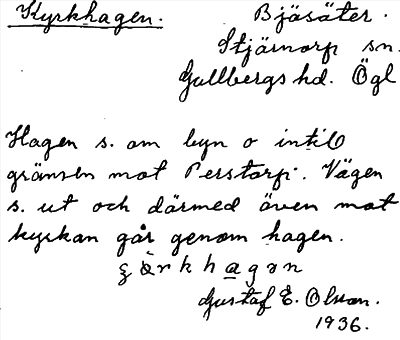 Kyrkhagen.
Bjäsäter.
Stjärnorp sn.
Gullbergs hd. Ögl
Hagen s. om byn o intill
gränsen mot Perstorp. Vägen
s. ut och därmed även mot
kyrkan går genom hagen.
Gustaf E. Olson.
1936.